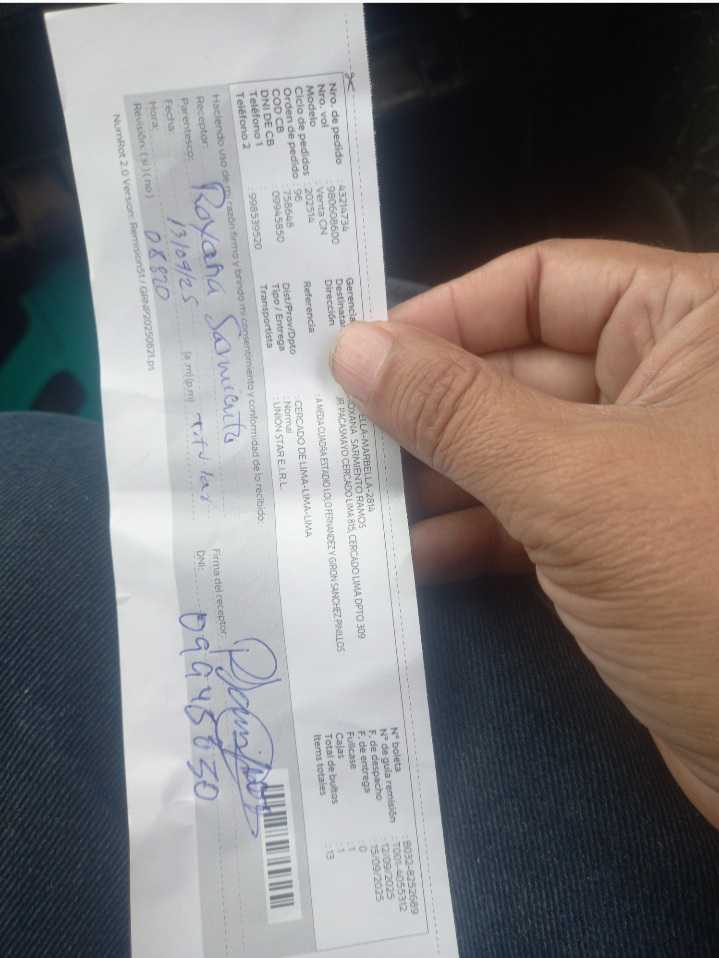 Nro. de pedido : 43214734
Nro. vol : 980608600
Modelo : Venta CN
Ciclo de pedidos : 202514
Orden de pedido : 96
COD CB : 758648
DNI DE CB : 09945850
Teléfono 1
Teléfono 2 : 998539520
Gerencia ELLA-MARBELLA-2814
Destinata OXANA SARMIENTO RAMOS
Dirección JR PACASMAYO CERCADO LIMA 815, CERCADO LIMA DPTO 309
Referencia : A MEDIA CUADRA ESTADIO LOLO FERNANDEZ Y GIRON SANCHEZ PINILLOS
Dist/Prov/Dpto : CERCADO DE LIMA-LIMA-LIMA
Tipo / Entrega : Normal
Transportista : UNIÓN STAR E.I.R.L.
N° boleta : B032-8252689
N° de guía remisión : T001-4055312
F. de despacho : 12/09/2025
F. de entrega : 15/09/2025
Fullcase : 0
Cajas : 1
Total de bultos : 1
Items totales : 13
Haciendo uso de mi razón firmo y brindo mi consentimiento y conformidad de lo recibido:
Receptor: Roxana Sarmiento
Parentesco: Titular
Fecha: 13/09/25
Hora: 08820 (a.m)(p.m)
Revisión: (si) (no)
Firma del receptor:
DNI: 09945850
NumRot 2.0 Version: RemisionSt / GRNP20250821.ps